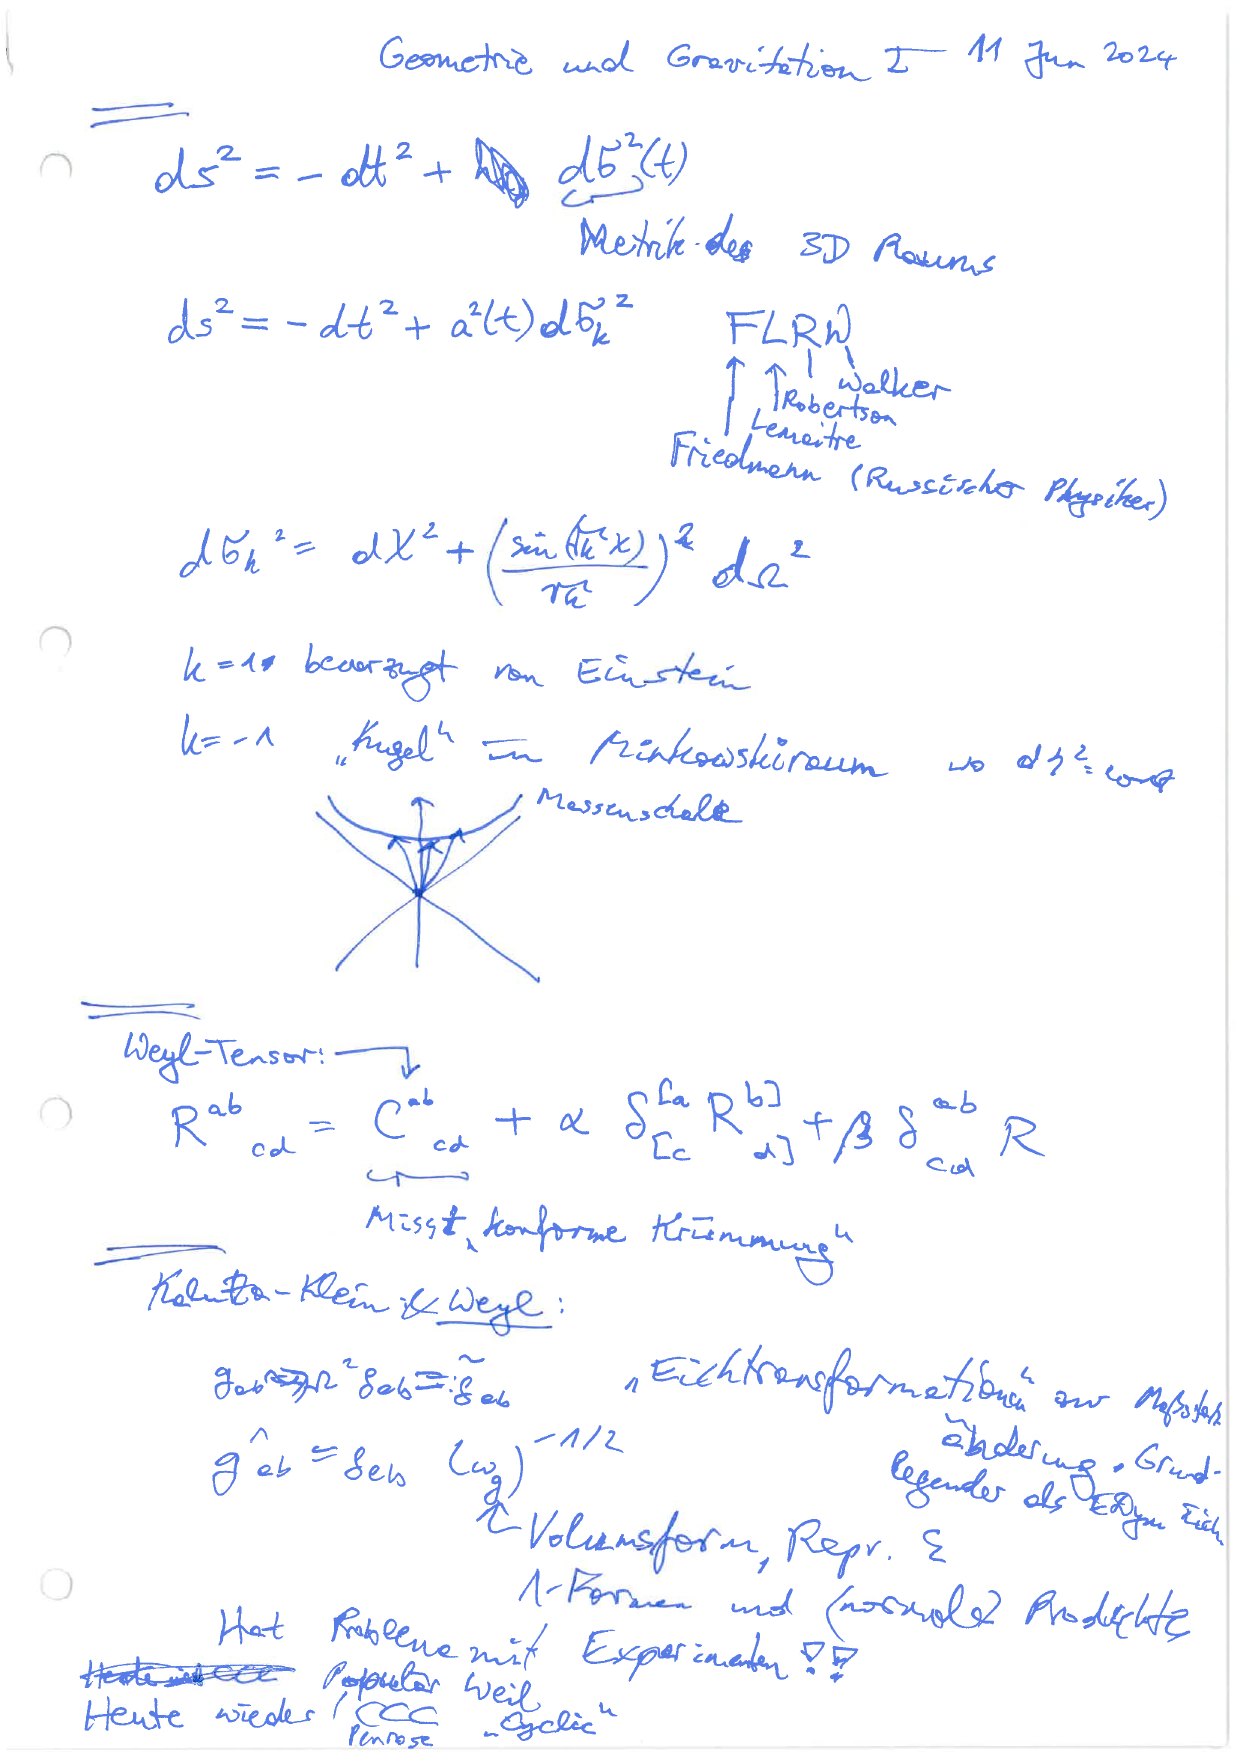 Geometrie und Gravitation I 11 Jun 2024
ds² = - dt² + dσ²(t)
Metrik des 3D Raums
ds² = - dt² + a²(t) dσₖ² FLRW
Walker
Robertson
Lemaitre
Friedmann (Russischer Physiker)
dσₖ² = dχ² + (sin(√k χ)/√k)² dΩ²
k = 1 bevorzugt von Einstein
k = -1 „Kugel" im Minkowskiraum wo ds² = const
Massenschale
Weyl-Tensor:
R^{ab}_{cd} = C^{ab}_{cd} + α δ^{[a}_{[c} R^{b]}_{d]} + β δ^{ab}_{cd} R
Misst „konforme Krümmung"
Kaluza-Klein & Weyl:
g_{ab} → Ω² g_{ab} = g̃_{ab} „Eichtransformation" zur Maßstab
änderung. Grund-
ĝ_{ab} = g_{ab} (ω_g)^{-1/2} legender als EDyn Eich
Volumsform, Repr. Σ
1-Formen und (normale) Produkte
Hat Probleme mit Experimenten !!
Populär weil
Heute wieder CCC „Cyclic"
Penrose